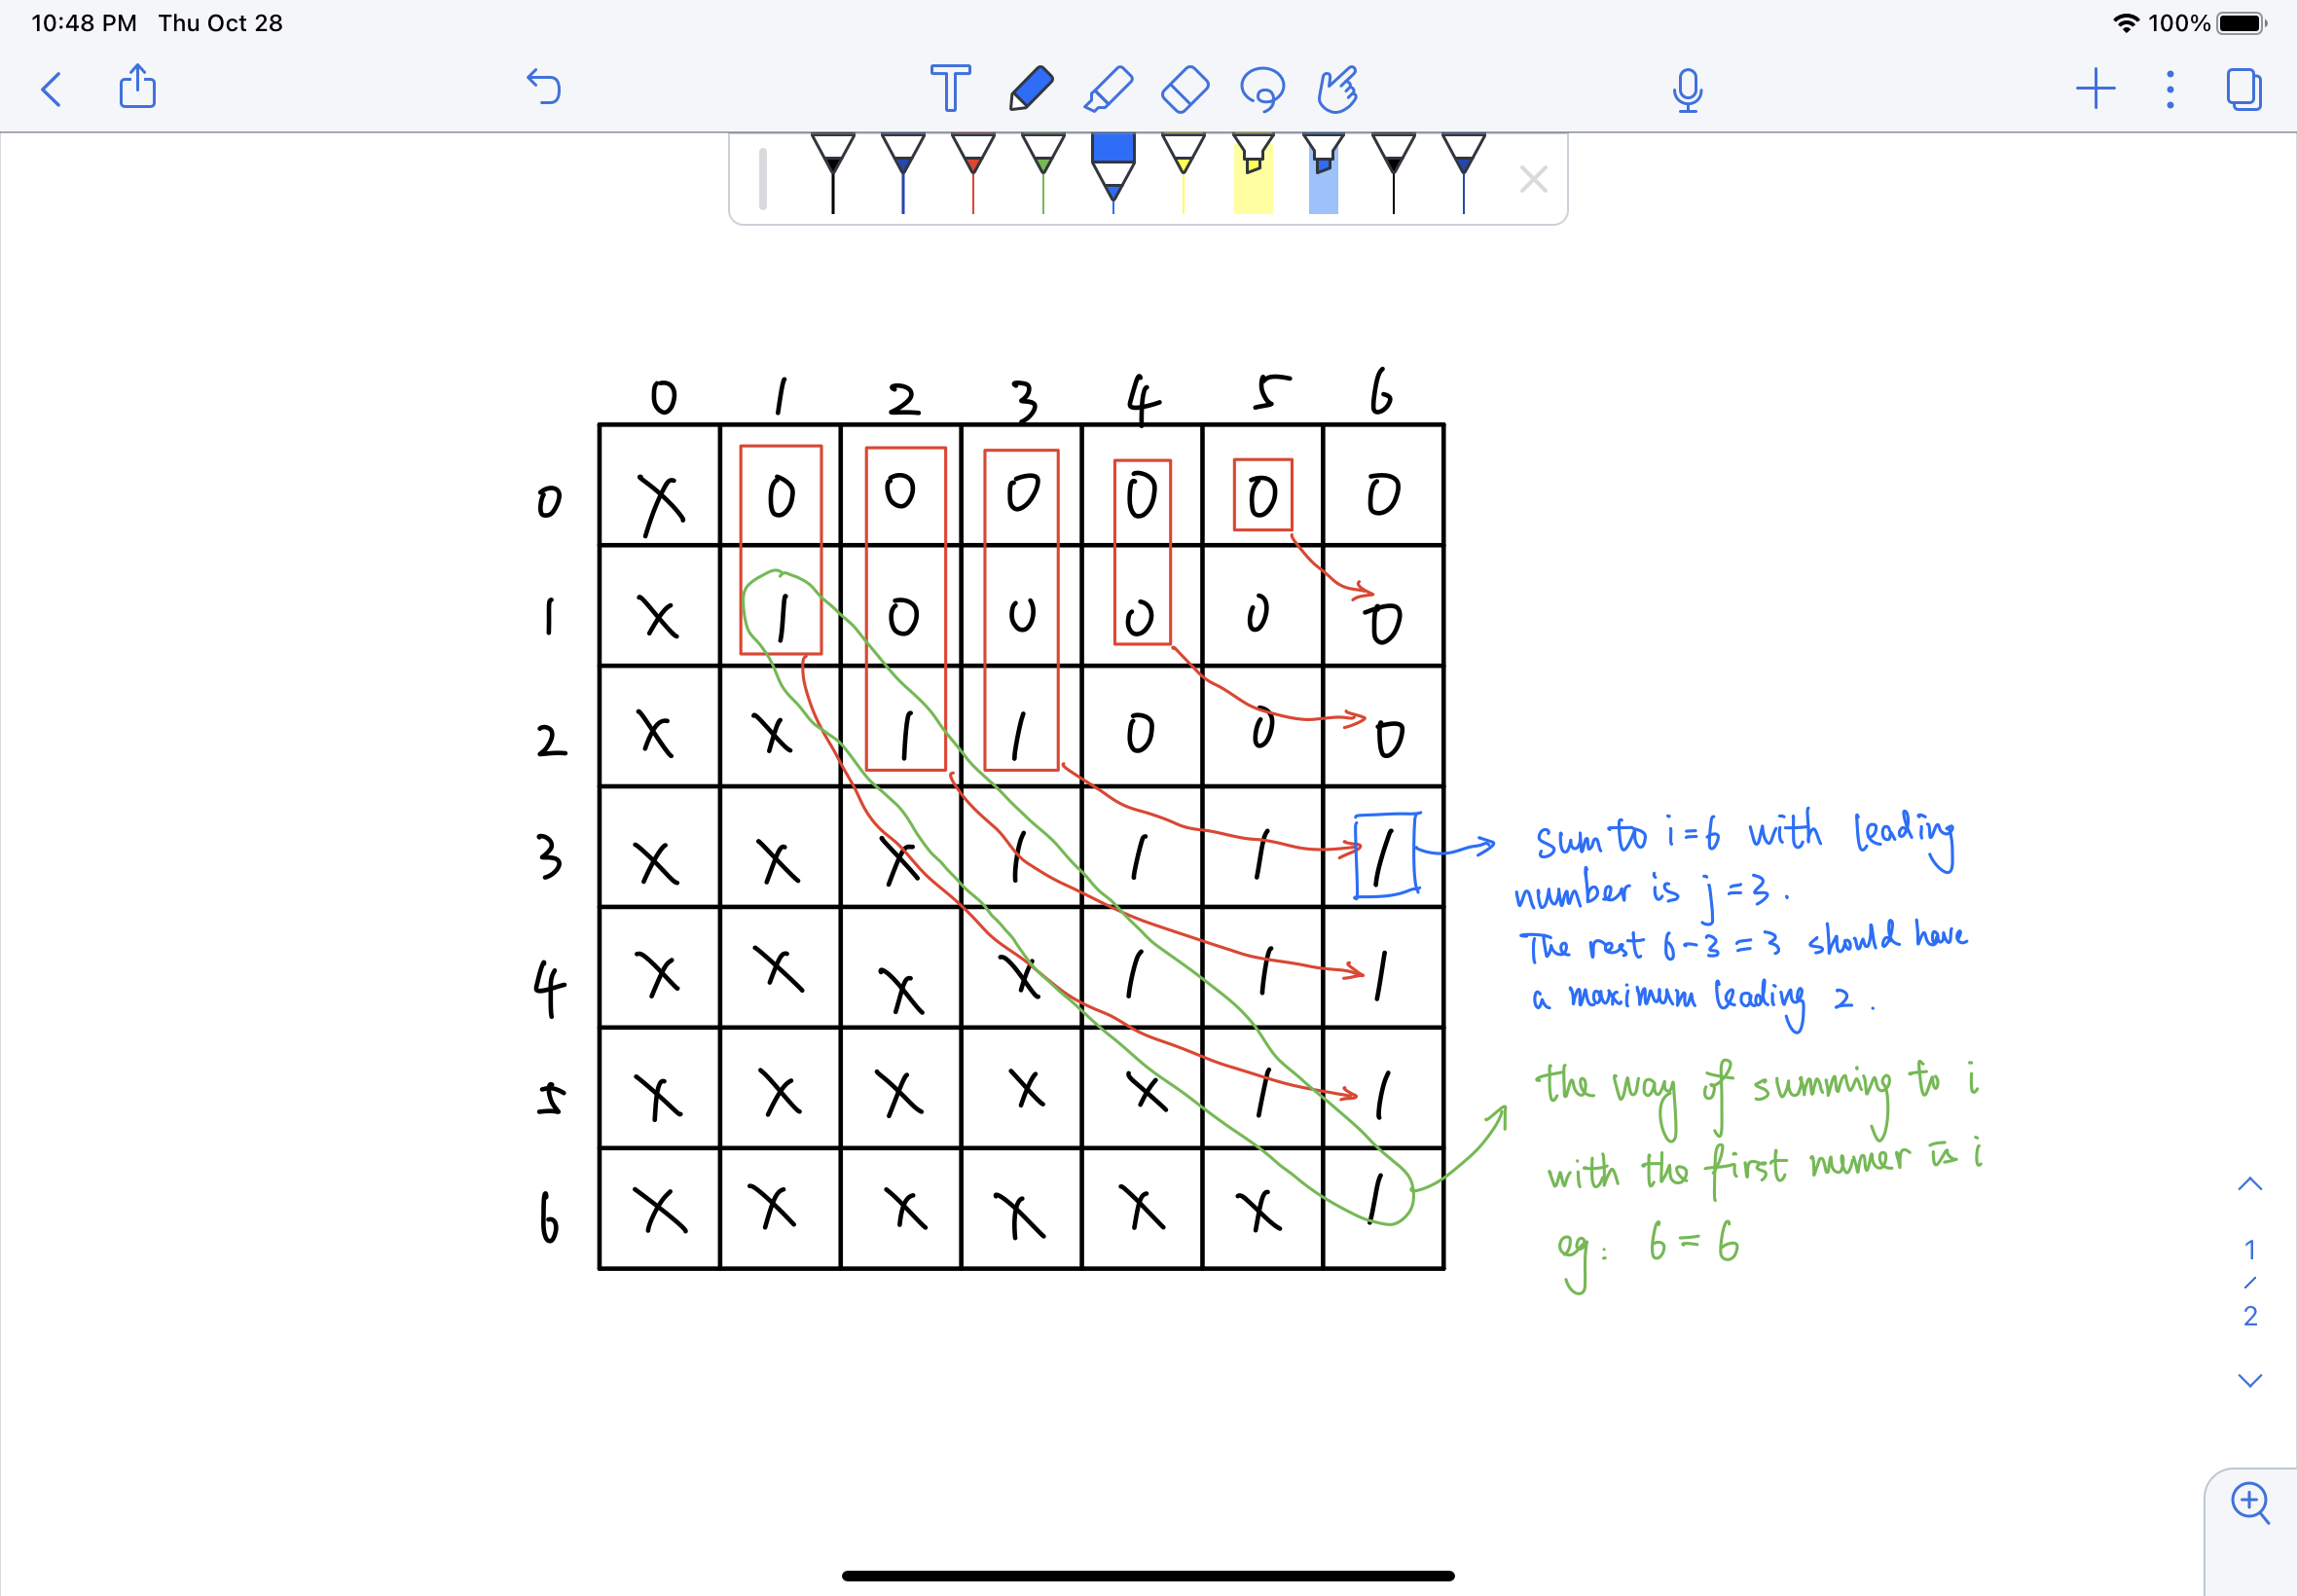 10:48 PM Thu Oct 28 100%
0 1 2 3 4 5 6
0 X 0 0 0 0 0 0
1 X 1 0 0 0 0 0
2 X X 1 1 0 0 0
3 X X X 1 1 1 1
4 X X X X 1 1 1
5 X X X X X 1 1
6 X X X X X X 1
sum to i=6 with leading
number is j=3.
The rest 6-3=3 should have
a maximum leading 2.
the way of summing to i
with the first numer is i
eg: 6=6
1
/
2